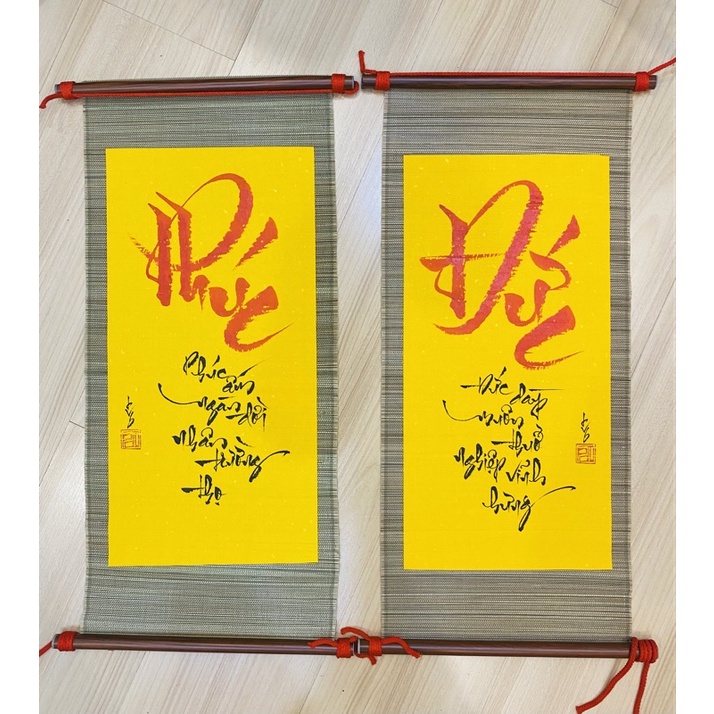 Phúc
Phúc ấm
ngàn đời
nhân trường
thọ
Đức
Đức dày
muôn thuở
nghiệp vĩnh
hưng